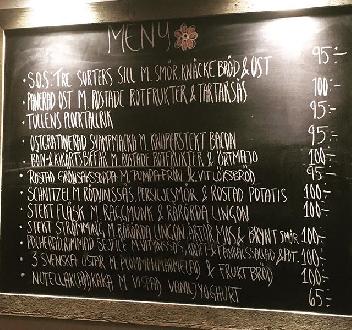 MENY
• S.O.S: TRE SORTERS SILL M. SMÖR, KNÄCKEBRÖD & OST 95:-
• PANERAD OST M. ROSTADE ROTFRUKTER & TARTARSÅS 100:-
TULLENS PLOCKTALLRIK 95:-
• OSTGRATINERAD SVAMPMACKA M. KNAPERSTEKT BACON 95:-
M. ROSTADE ROTFRUKTER & 100:-
• ROSTAD GRÖNSAKSSOPPA M. PUMPAFRÖN & VITLÖKSBRÖD 95:-
• SCHNITZEL M. RÖDVINSSÅS, PERSILJESMÖR & ROSTAD POTATIS 100:-
• STEKT FLÄSK M. RAGGMUNK & RÅRÖRDA LINGON 100:-
• STEKT STRÖMMING M. RÅRÖRDA LINGON MOS & BRYNT SMÖR 100:-
100:-
• 3 SVENSKA OSTAR M. & FRUKTBRÖD 100:-
• M. VISPAD VANILJYOGHURT 65:-